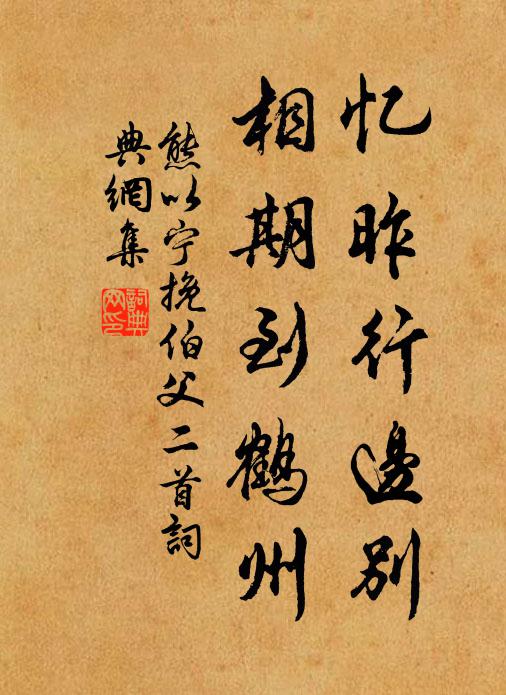 忆昨行边别
相期到鹤州
熊以宁挽伯父二首詞
典網集
詞典
网印